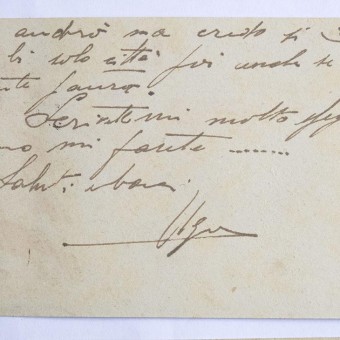 andrò ma credo si
li solo città poi anche se
Scrivetemi molto
mi farete ........
Saluti e baci
Ugo